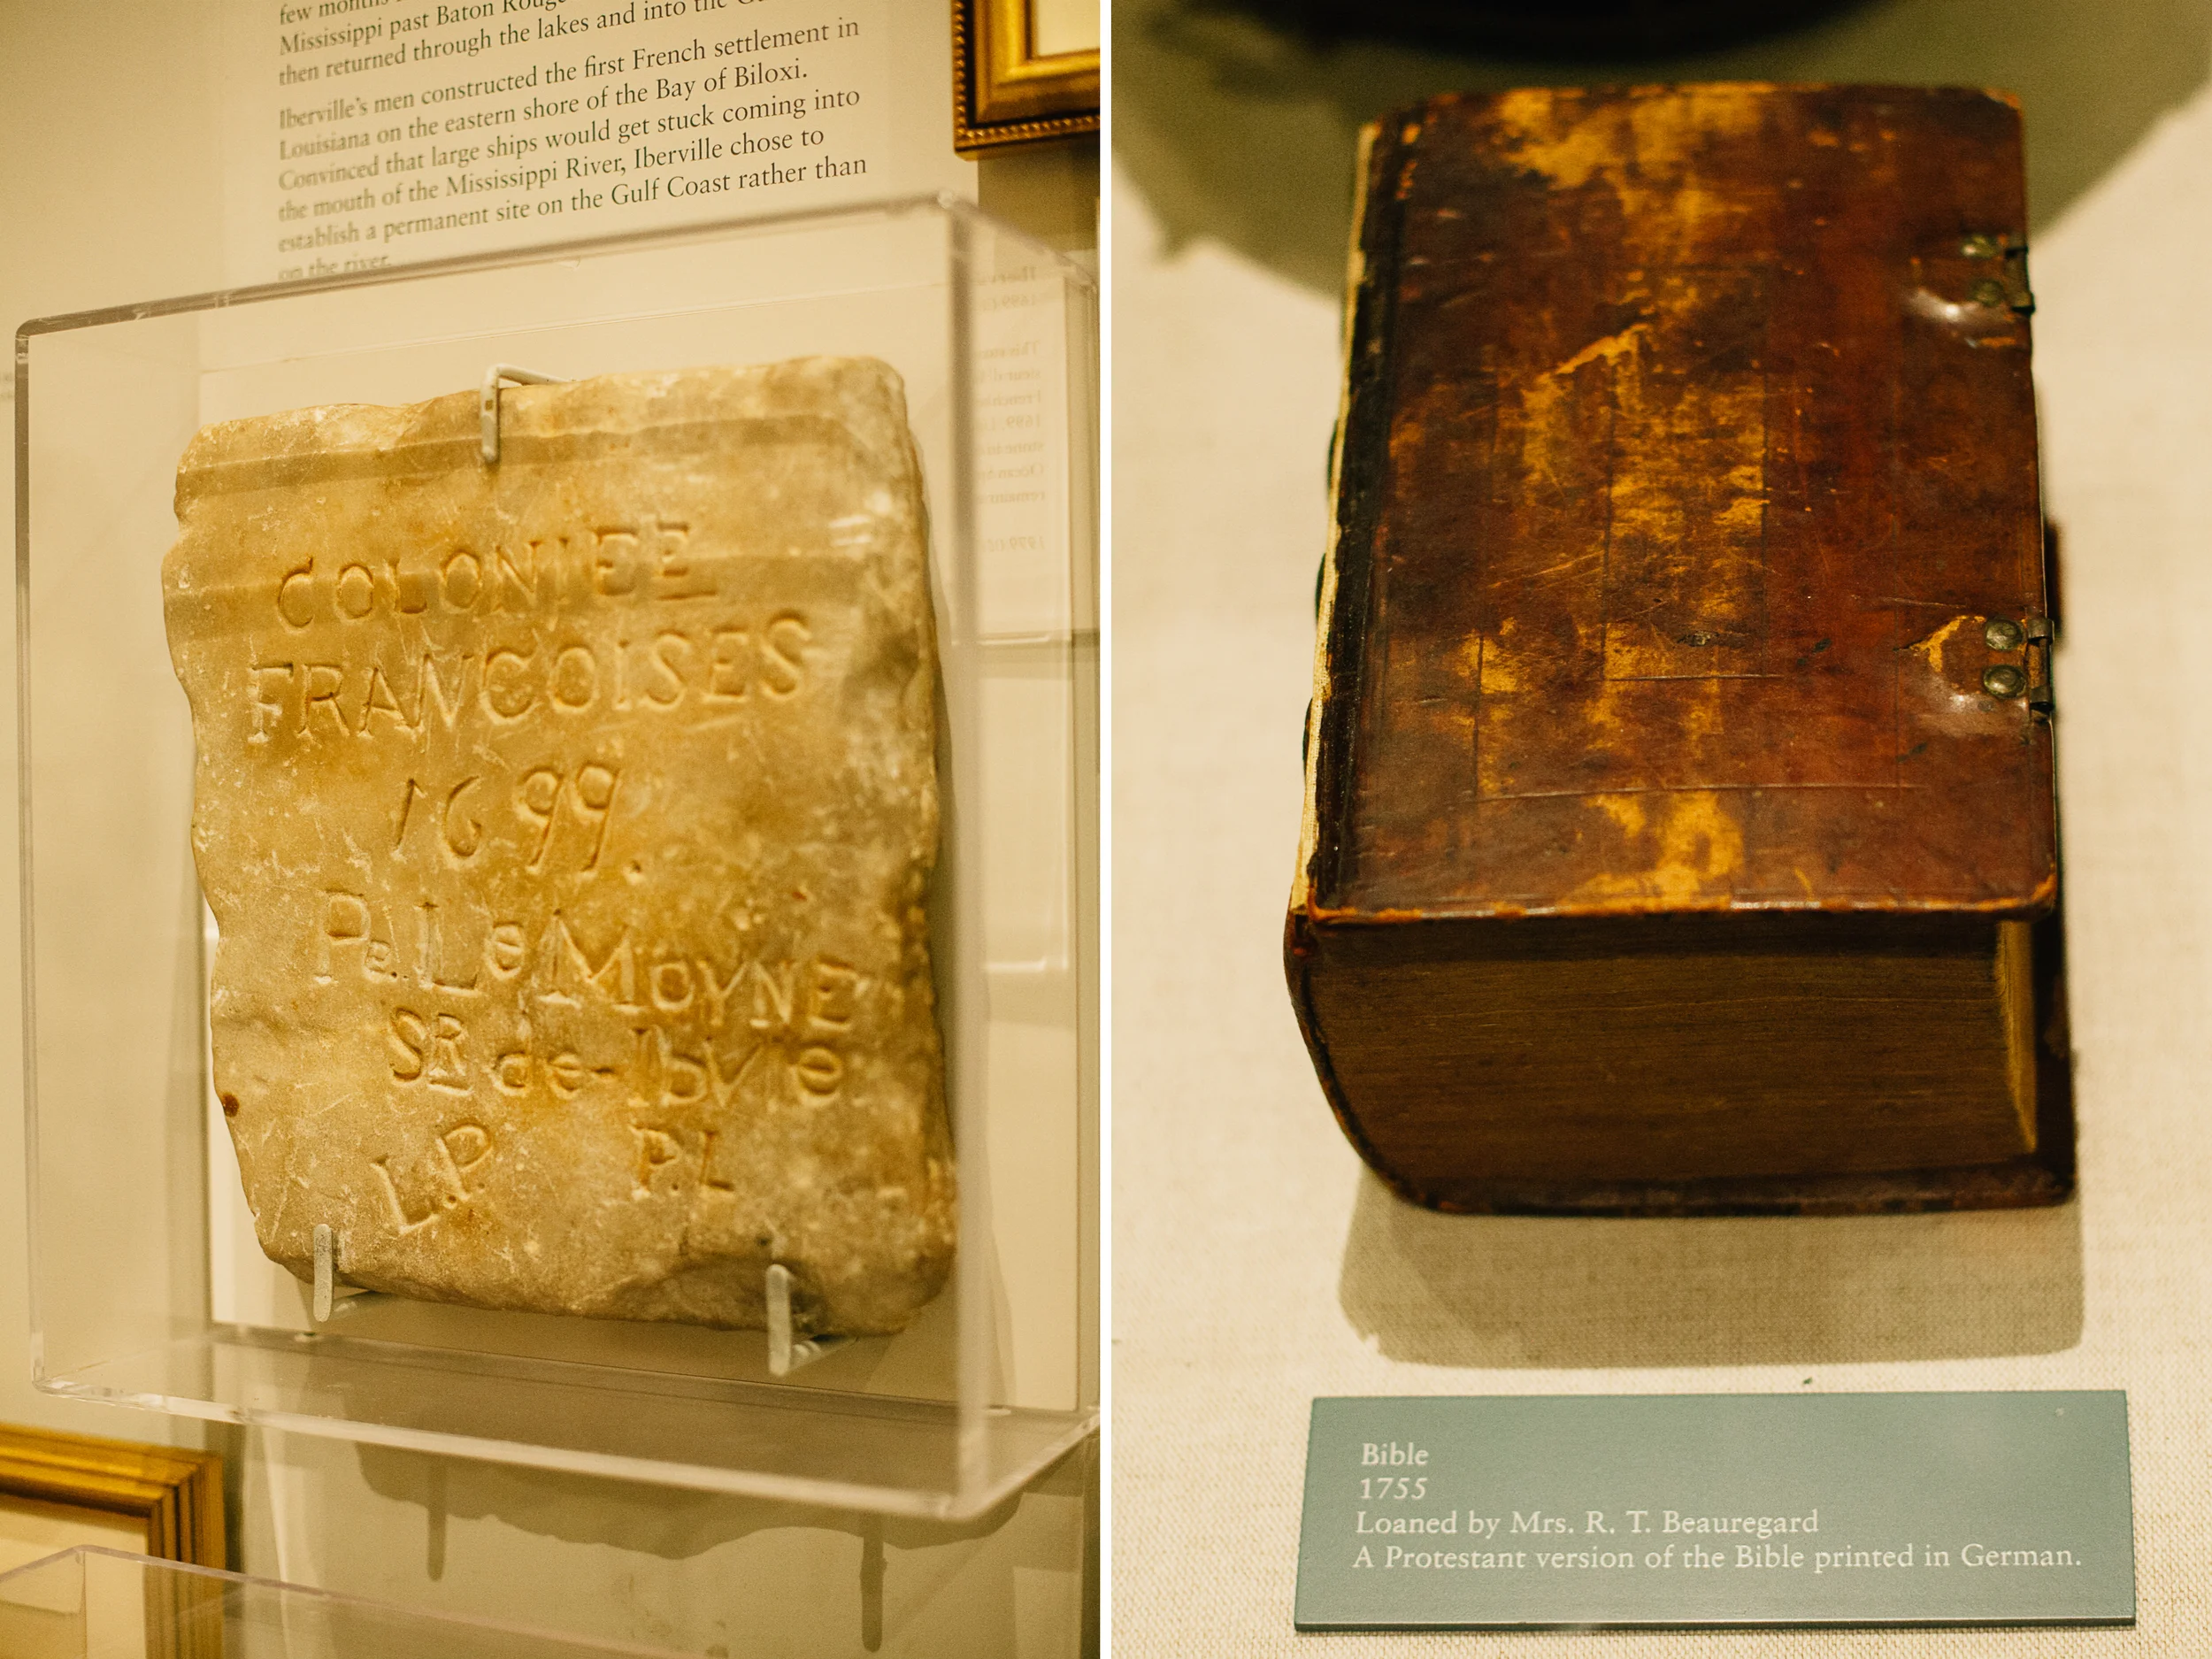 few months
Mississippi past Baton Rouge
then returned through the lakes and into the
Iberville's men constructed the first French settlement in
Louisiana on the eastern shore of the Bay of Biloxi.
Convinced that large ships would get stuck coming into
the mouth of the Mississippi River, Iberville chose to
establish a permanent site on the Gulf Coast rather than
on the river.
COLONIEE
FRANCOISES
1699.
Pe. Le MOYNE
SR de-Ibvle
L.P. P.L
Bible
1755
Loaned by Mrs. R. T. Beauregard
A Protestant version of the Bible printed in German.